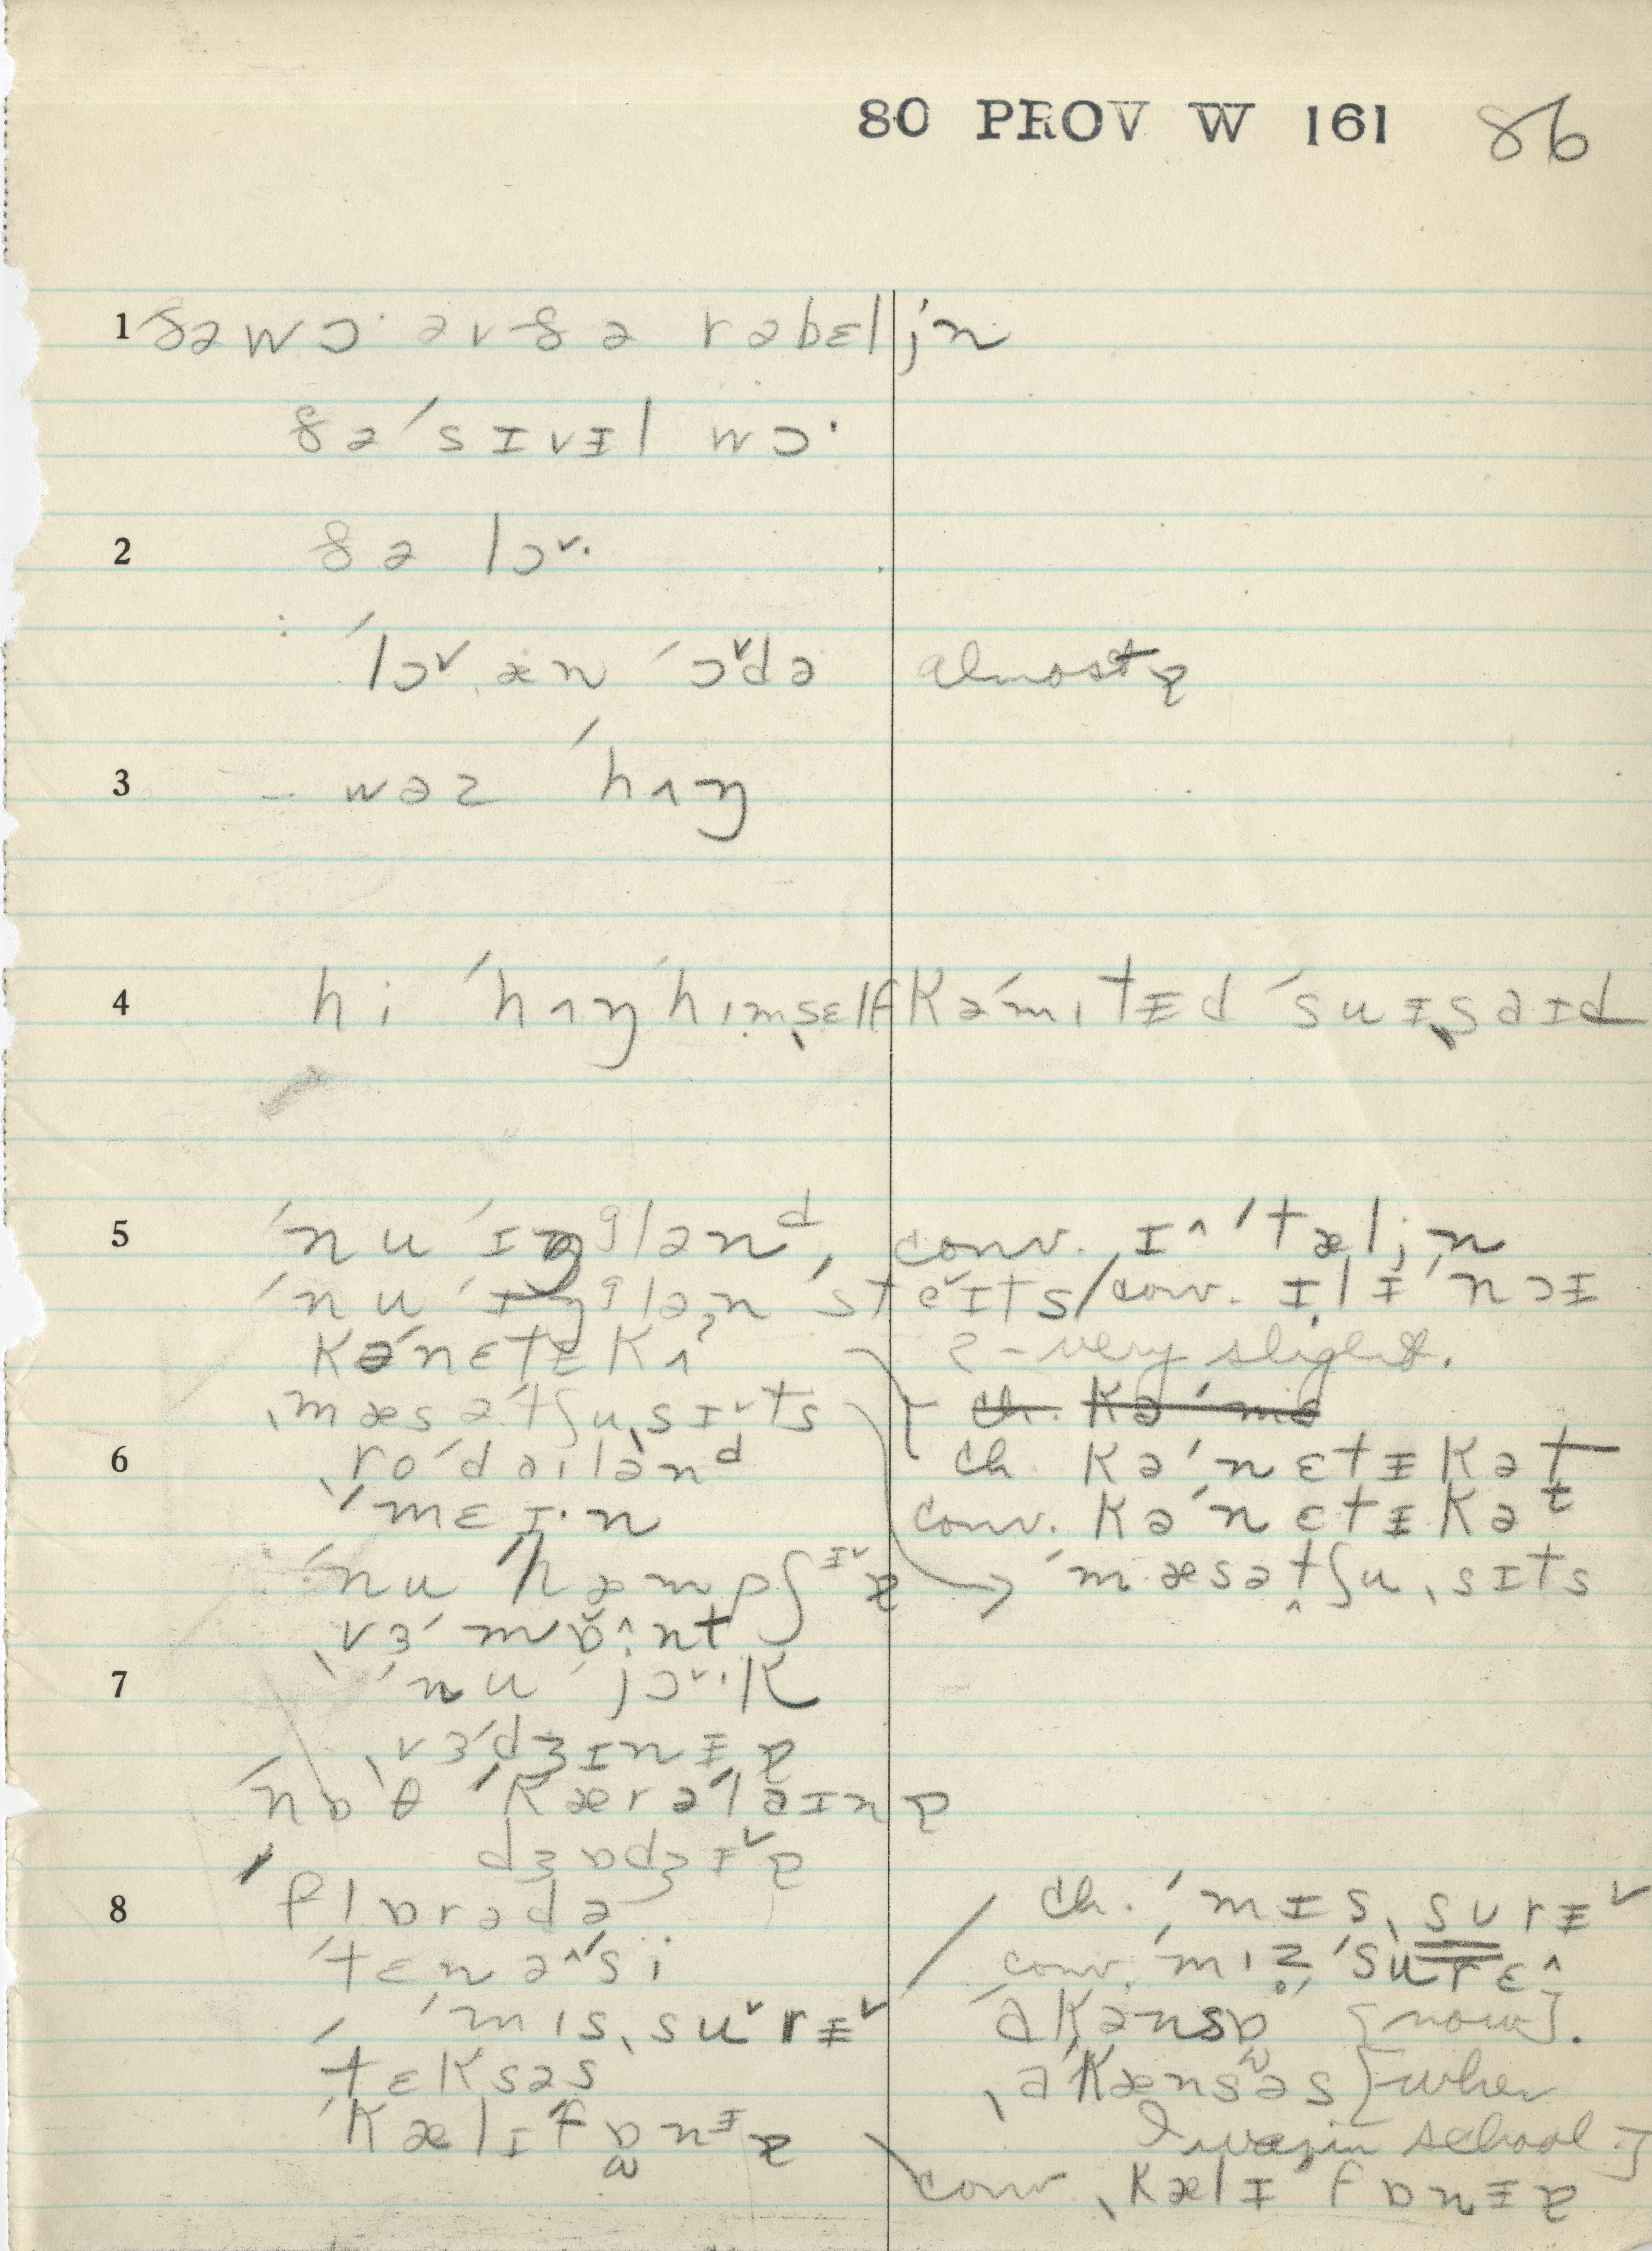 80 PROV W 161 86
1 ðə wɔ· əv ðə rəbɛljn
ðə ˈsɪvɪ̵l wɔ·
2 ðə lɔ˅·
ˈlɔ˅ æn ˈɔ˅də almost ɐ
3 – wəz ˈhʌŋ
4 hi ˈhʌŋ hɪmˌsɛlf kəˈmɪtɪ̵d ˈsuɪˌsaɪd
5 ˈnu ˈɪŋᵍlənᵈ, conv. ɪ^ˈtæljn
ˈnu ˈɪŋᵍlən ˈste˅ɪts / conv. ɪlɪ̵ˈnɔɪ
kəˈnɛtɪ̵kʌ – very slight.
ˌmæsəˈtʃuˌsɪ˅ts ch. kəˈnɛ
6 ˌroˈdaɪlənᵈ ch. kəˈnɛtɪ̵kət
ˈmɛɪ·n conv. kəˈnɛtɪ̵kəᵗ
ˈnu ˈhæmpʃɪ̵˅ɐ → ˈmæsətʃuˌsɪts
ˌvɜˈmɒ^nt
7 ˈnu ˈjɔ˅·k
ˌvɜˈdʒɪnɪ̵ɐ
ˈnɒθ ˈkærəˈlaɪnɐ
dʒɒdʒɪ̵˅ɐ
8 ˈflɒrədə ch. ˈmɪsˌsʊrɪ̵˅
ˈtɛnə^ˈsi conv. ˈmɪz̥ˈsʊrɛ^
ˈmɪsˌsu˅rɪ̵˅ ˈakənsɒ [now].
ˈtɛksəs ˌaˈkænsəs [when
ˈkælɪˈfɒnɪ̵ɐ I was in school]
conv ˌkælɪ̵ˈfɒnɪ̵ɐ